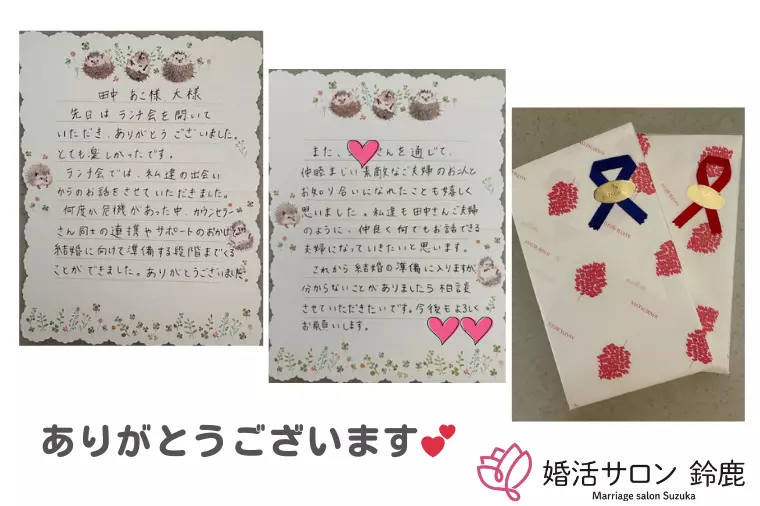 田中 あこ様 大様
先日は ランチ会を開いて
いただき、ありがとう ございました。
とても楽しかったです。
ランチ会では、私達の出会い
からのお話をさせていただきました。
何度か危機があった中、カウンセラー
さん同士の連携やサポートのおかげで
結婚に向けて準備する段階までくる
ことができました。ありがとうございました。
また、
さんを通じて、
仲睦まじい素敵なご夫婦のお二人と
お知り合いになれたことも嬉しく
思いました。私達も田中さんご夫婦
のように、仲良く何でもお話できる
夫婦になっていきたいと思います。
これから結婚の準備に入りますが
分からないことがありましたら相談
させていただきたいです。今後もよろしく
お願いします。
ありがとうございます
婚活サロン 鈴鹿
Marriage salon Suzuka